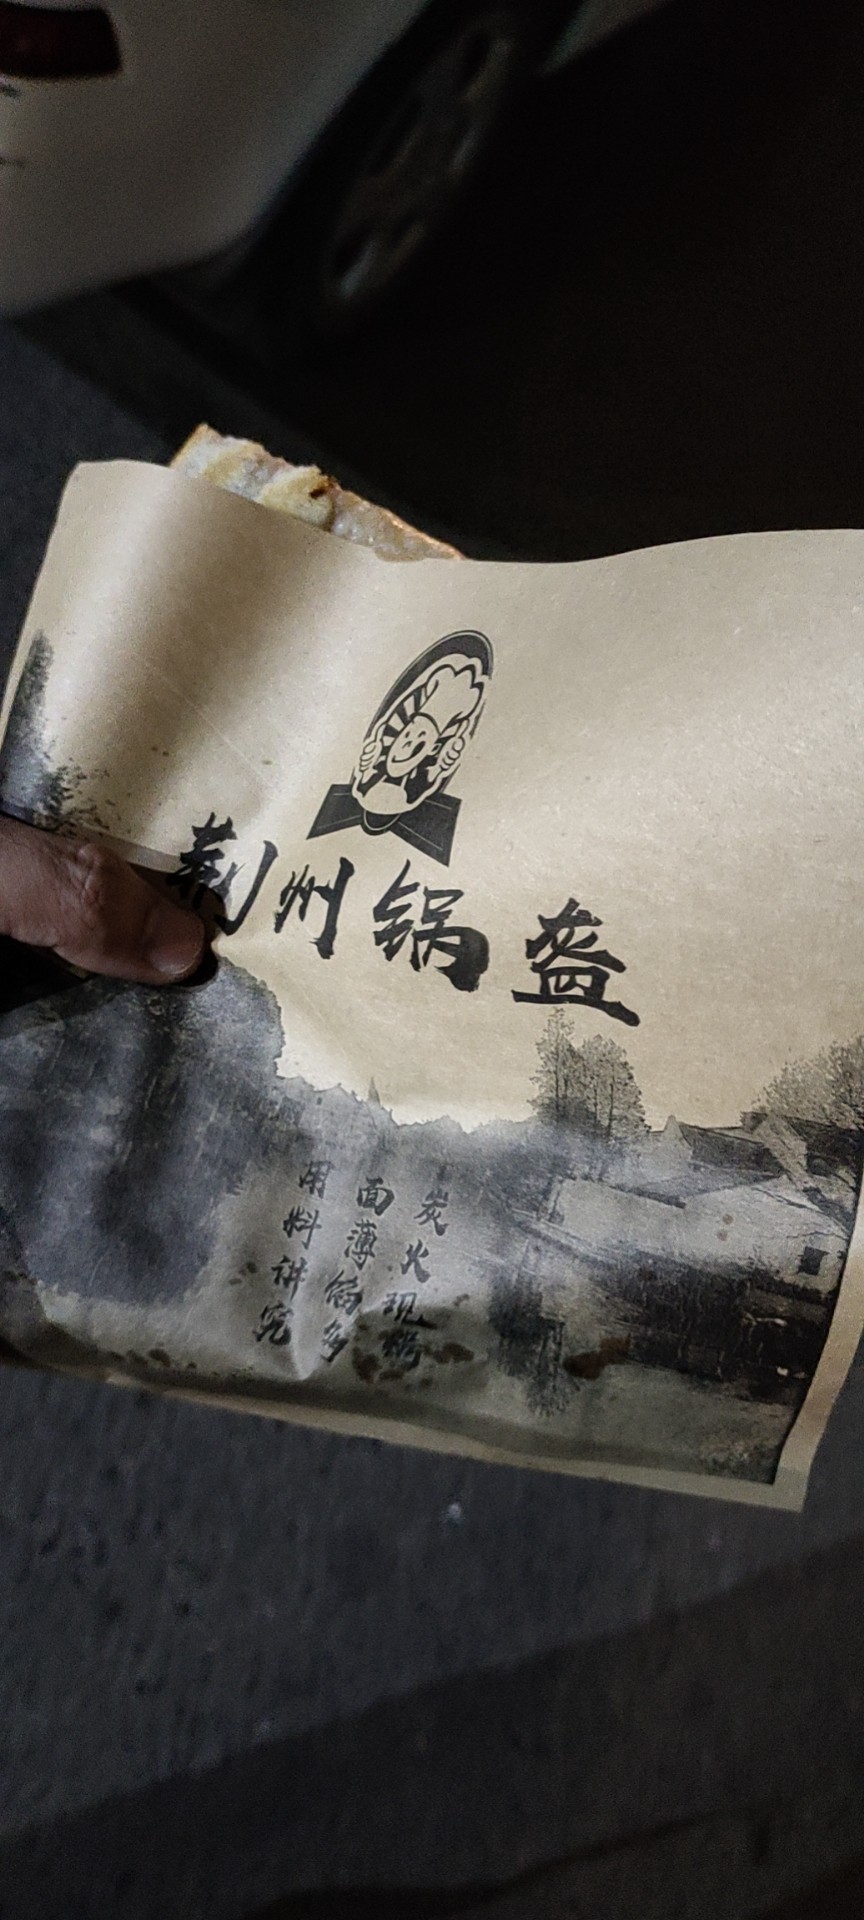 荆州锅盔
炭火现烤
面薄馅多
用料讲究